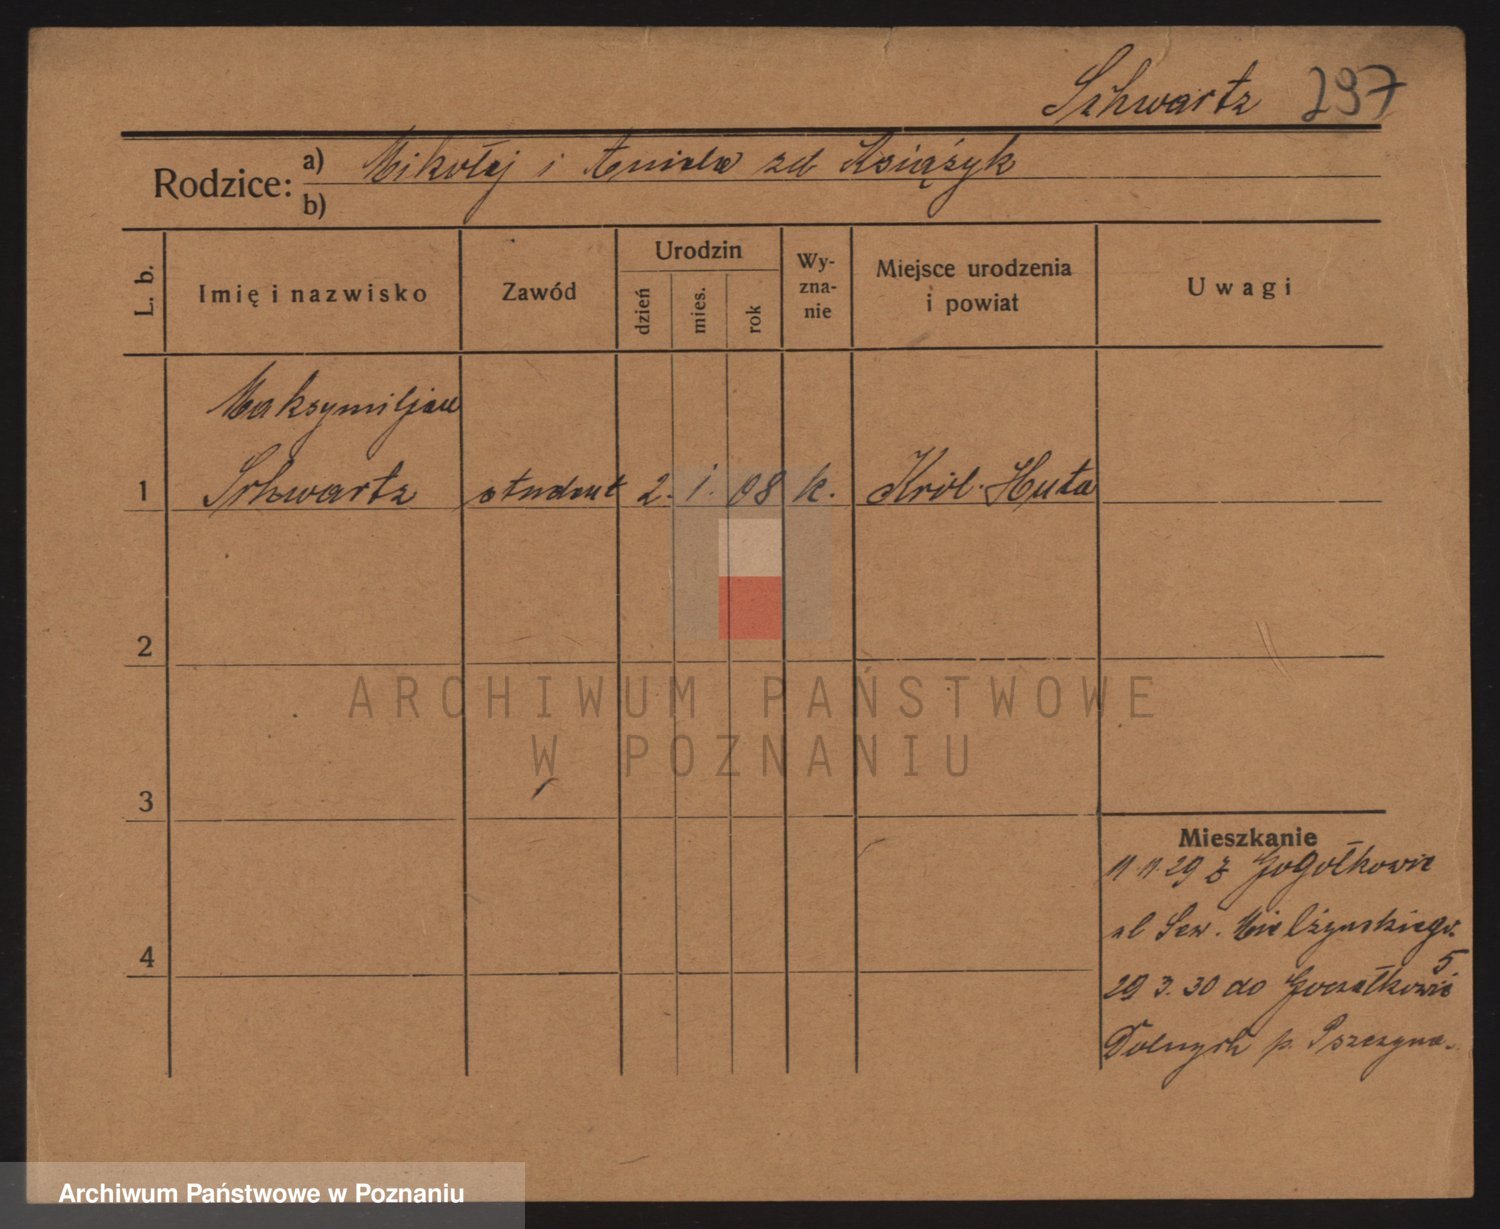 Schwartz 297
Rodzice: a) Mikołaj i Aniela zd Książyk
b)
L. b.
Imię i nazwisko
Zawód
Urodzin
dzień
mies.
rok
Wy-
zna-
nie
Miejsce urodzenia
i powiat
Uwagi
Maksymiljan
1 Schwartz student 2. 1. 08 k. Król. Huta
2
ARCHIWUM PAŃSTWOWE
W POZNANIU
3
Mieszkanie
11.11.29 z
ul Sew. Mielżyńskiego
5
4
29 3.30 do Goczałkowic
Dolnych p. Pszczyna.
Archiwum Państwowe w Poznaniu